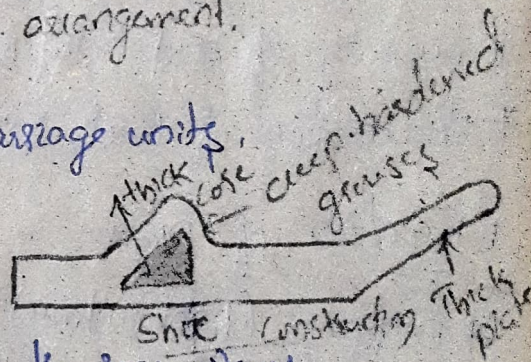 arrangement.
units.
thick
core
deep hardened
grouses
Shoe Construction
Thick
plate